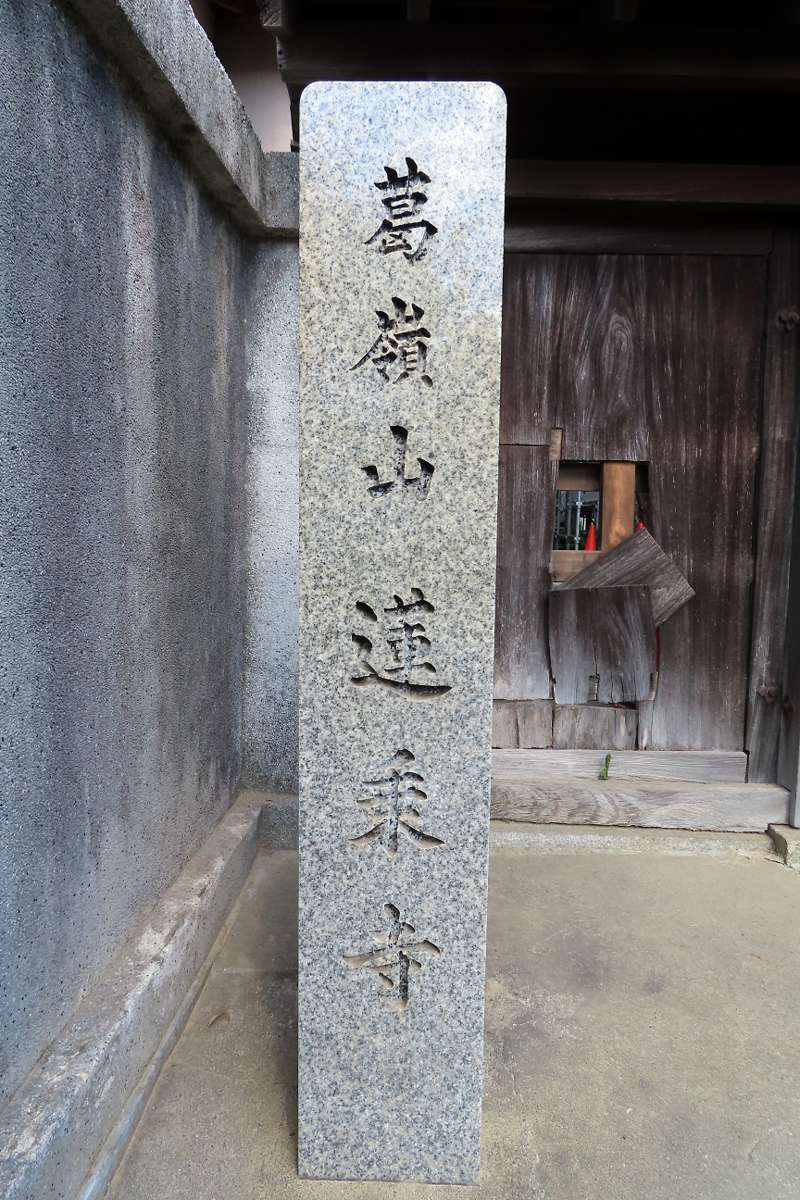 葛嶺山蓮乗寺